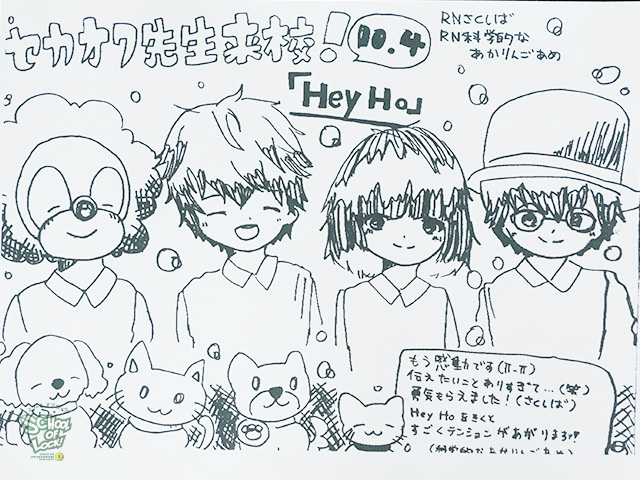 セカオワ先生来校!
10.4
RNさくしば
RN科学的な
あかりんごあめ
「Hey Ho」
もう感動です(π-π)
伝えたいことありすぎて…(笑)
勇気もらえました!(さくしば)
Hey Hoをきくと
すごくテンションがあがります!
(科学的なあかりんごあめ)
SCHOOL
OF
LOCK!